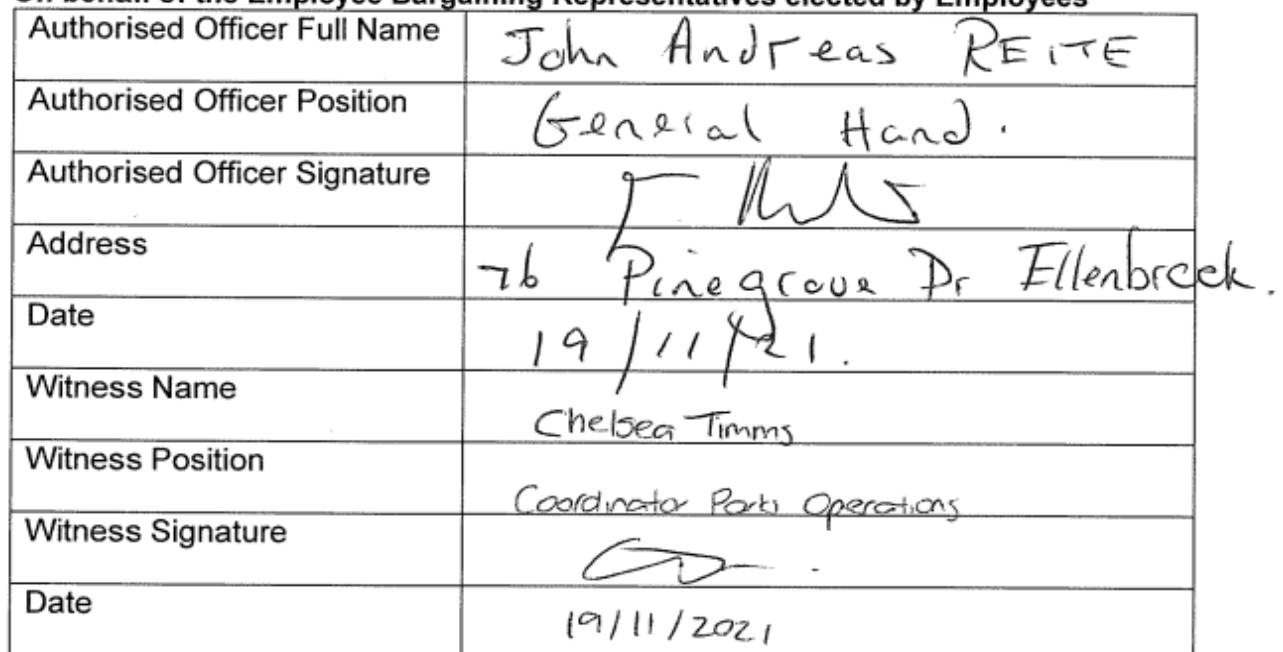 On behalf of the Employee Bargaining Representatives elected by Employees
Authorised Officer Full Name John Andreas REITE
Authorised Officer Position General Hand.
Authorised Officer Signature
Address 76 Pinegrove Dr Ellenbrook.
Date 19/11/21.
Witness Name Chelsea Timms
Witness Position Coordinator Parks Operations
Witness Signature
Date 19/11/2021